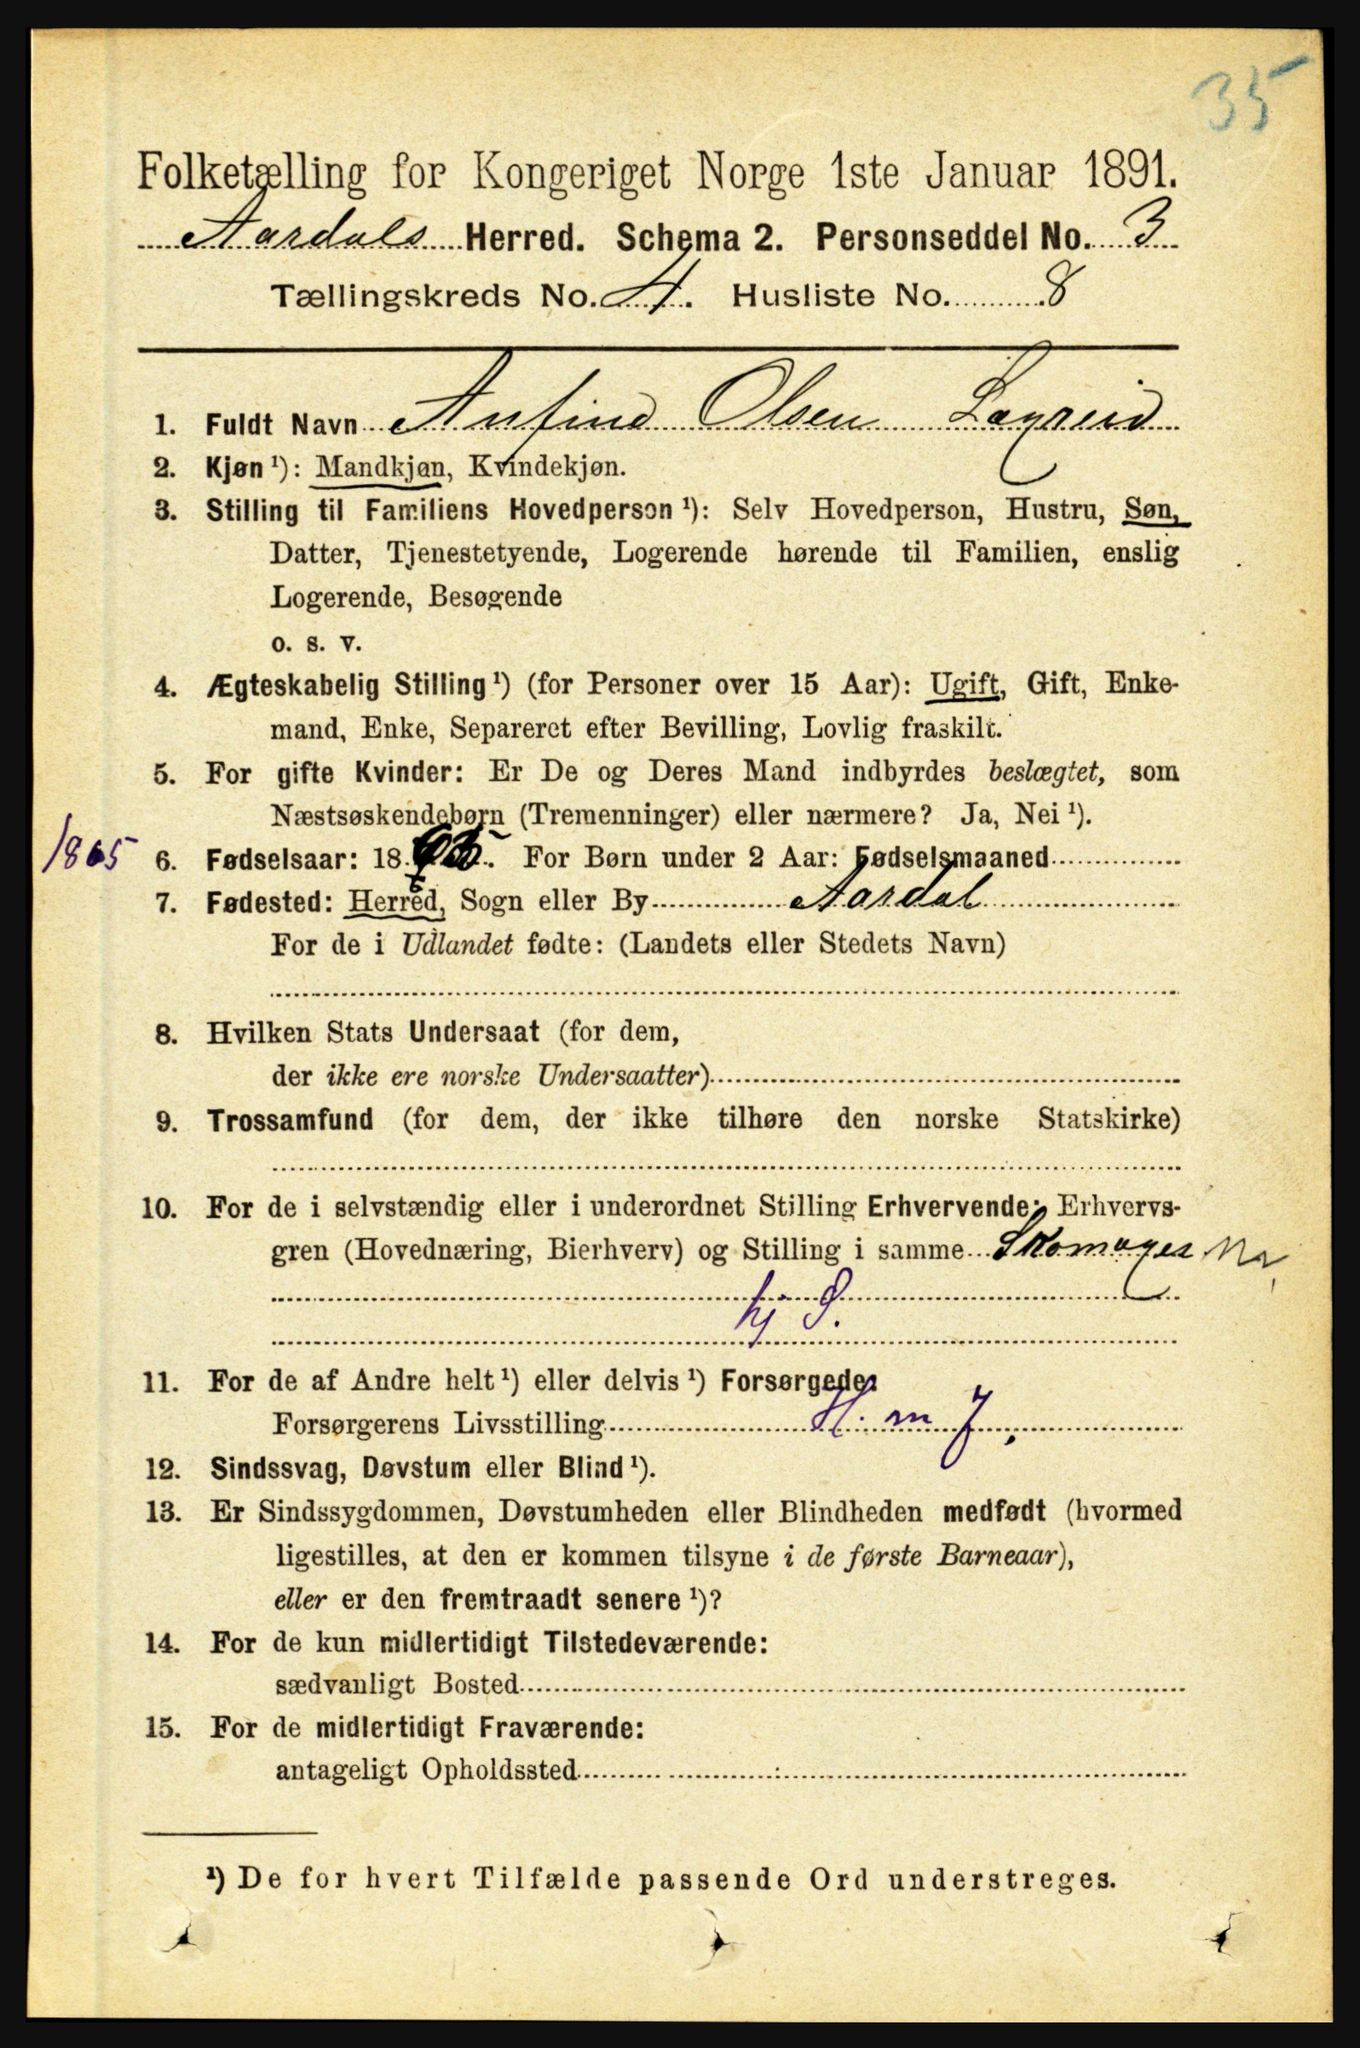 35
Folketælling for Kongeriget Norge 1ste Januar 1891.
Aardals Herred. Schema 2. Personseddel No. 3
Tællingskreds No. 4. Husliste No. 8
1. Fuldt Navn Anfind Olsen Lægreid
2. Kjøn ¹): Mandkjøn, Kvindekjøn.
3. Stilling til Familiens Hovedperson ¹): Selv Hovedperson, Hustru, Søn,
Datter, Tjenestetyende, Logerende hørende til Familien, enslig
Logerende, Besøgende
o. s. v.
4. Ægteskabelig Stilling ¹) (for Personer over 15 Aar): Ugift, Gift, Enke-
mand, Enke, Separeret efter Bevilling, Lovlig fraskilt.
5. For gifte Kvinder: Er De og Deres Mand indbyrdes beslægtet, som
Næstsøskendebørn (Tremenninger) eller nærmere? Ja, Nei ¹).
1865 6. Fødselsaar: 18 65. For Børn under 2 Aar: Fødselsmaaned
7. Fødested: Herred, Sogn eller By Aardal
For de i Udlandet fødte: (Landets eller Stedets Navn)
8. Hvilken Stats Undersaat (for dem,
der ikke ere norske Undersaatter)
9. Trossamfund (for dem, der ikke tilhøre den norske Statskirke)
10. For de i selvstændig eller i underordnet Stilling Erhvervende: Erhvervs-
gren (Hovednæring, Bierhverv) og Stilling i samme Skomager
hj S.
11. For de af Andre helt ¹) eller delvis ¹) Forsørgede:
Forsørgerens Livsstilling H. m J.
12. Sindssvag, Døvstum eller Blind ¹).
13. Er Sindssygdommen, Døvstumheden eller Blindheden medfødt (hvormed
ligestilles, at den er kommen tilsyne i de første Barneaar),
eller er den fremtraadt senere ¹)?
14. For de kun midlertidigt Tilstedeværende:
sædvanligt Bosted
15. For de midlertidigt Fraværende:
antageligt Opholdssted
¹) De for hvert Tilfælde passende Ord understreges.